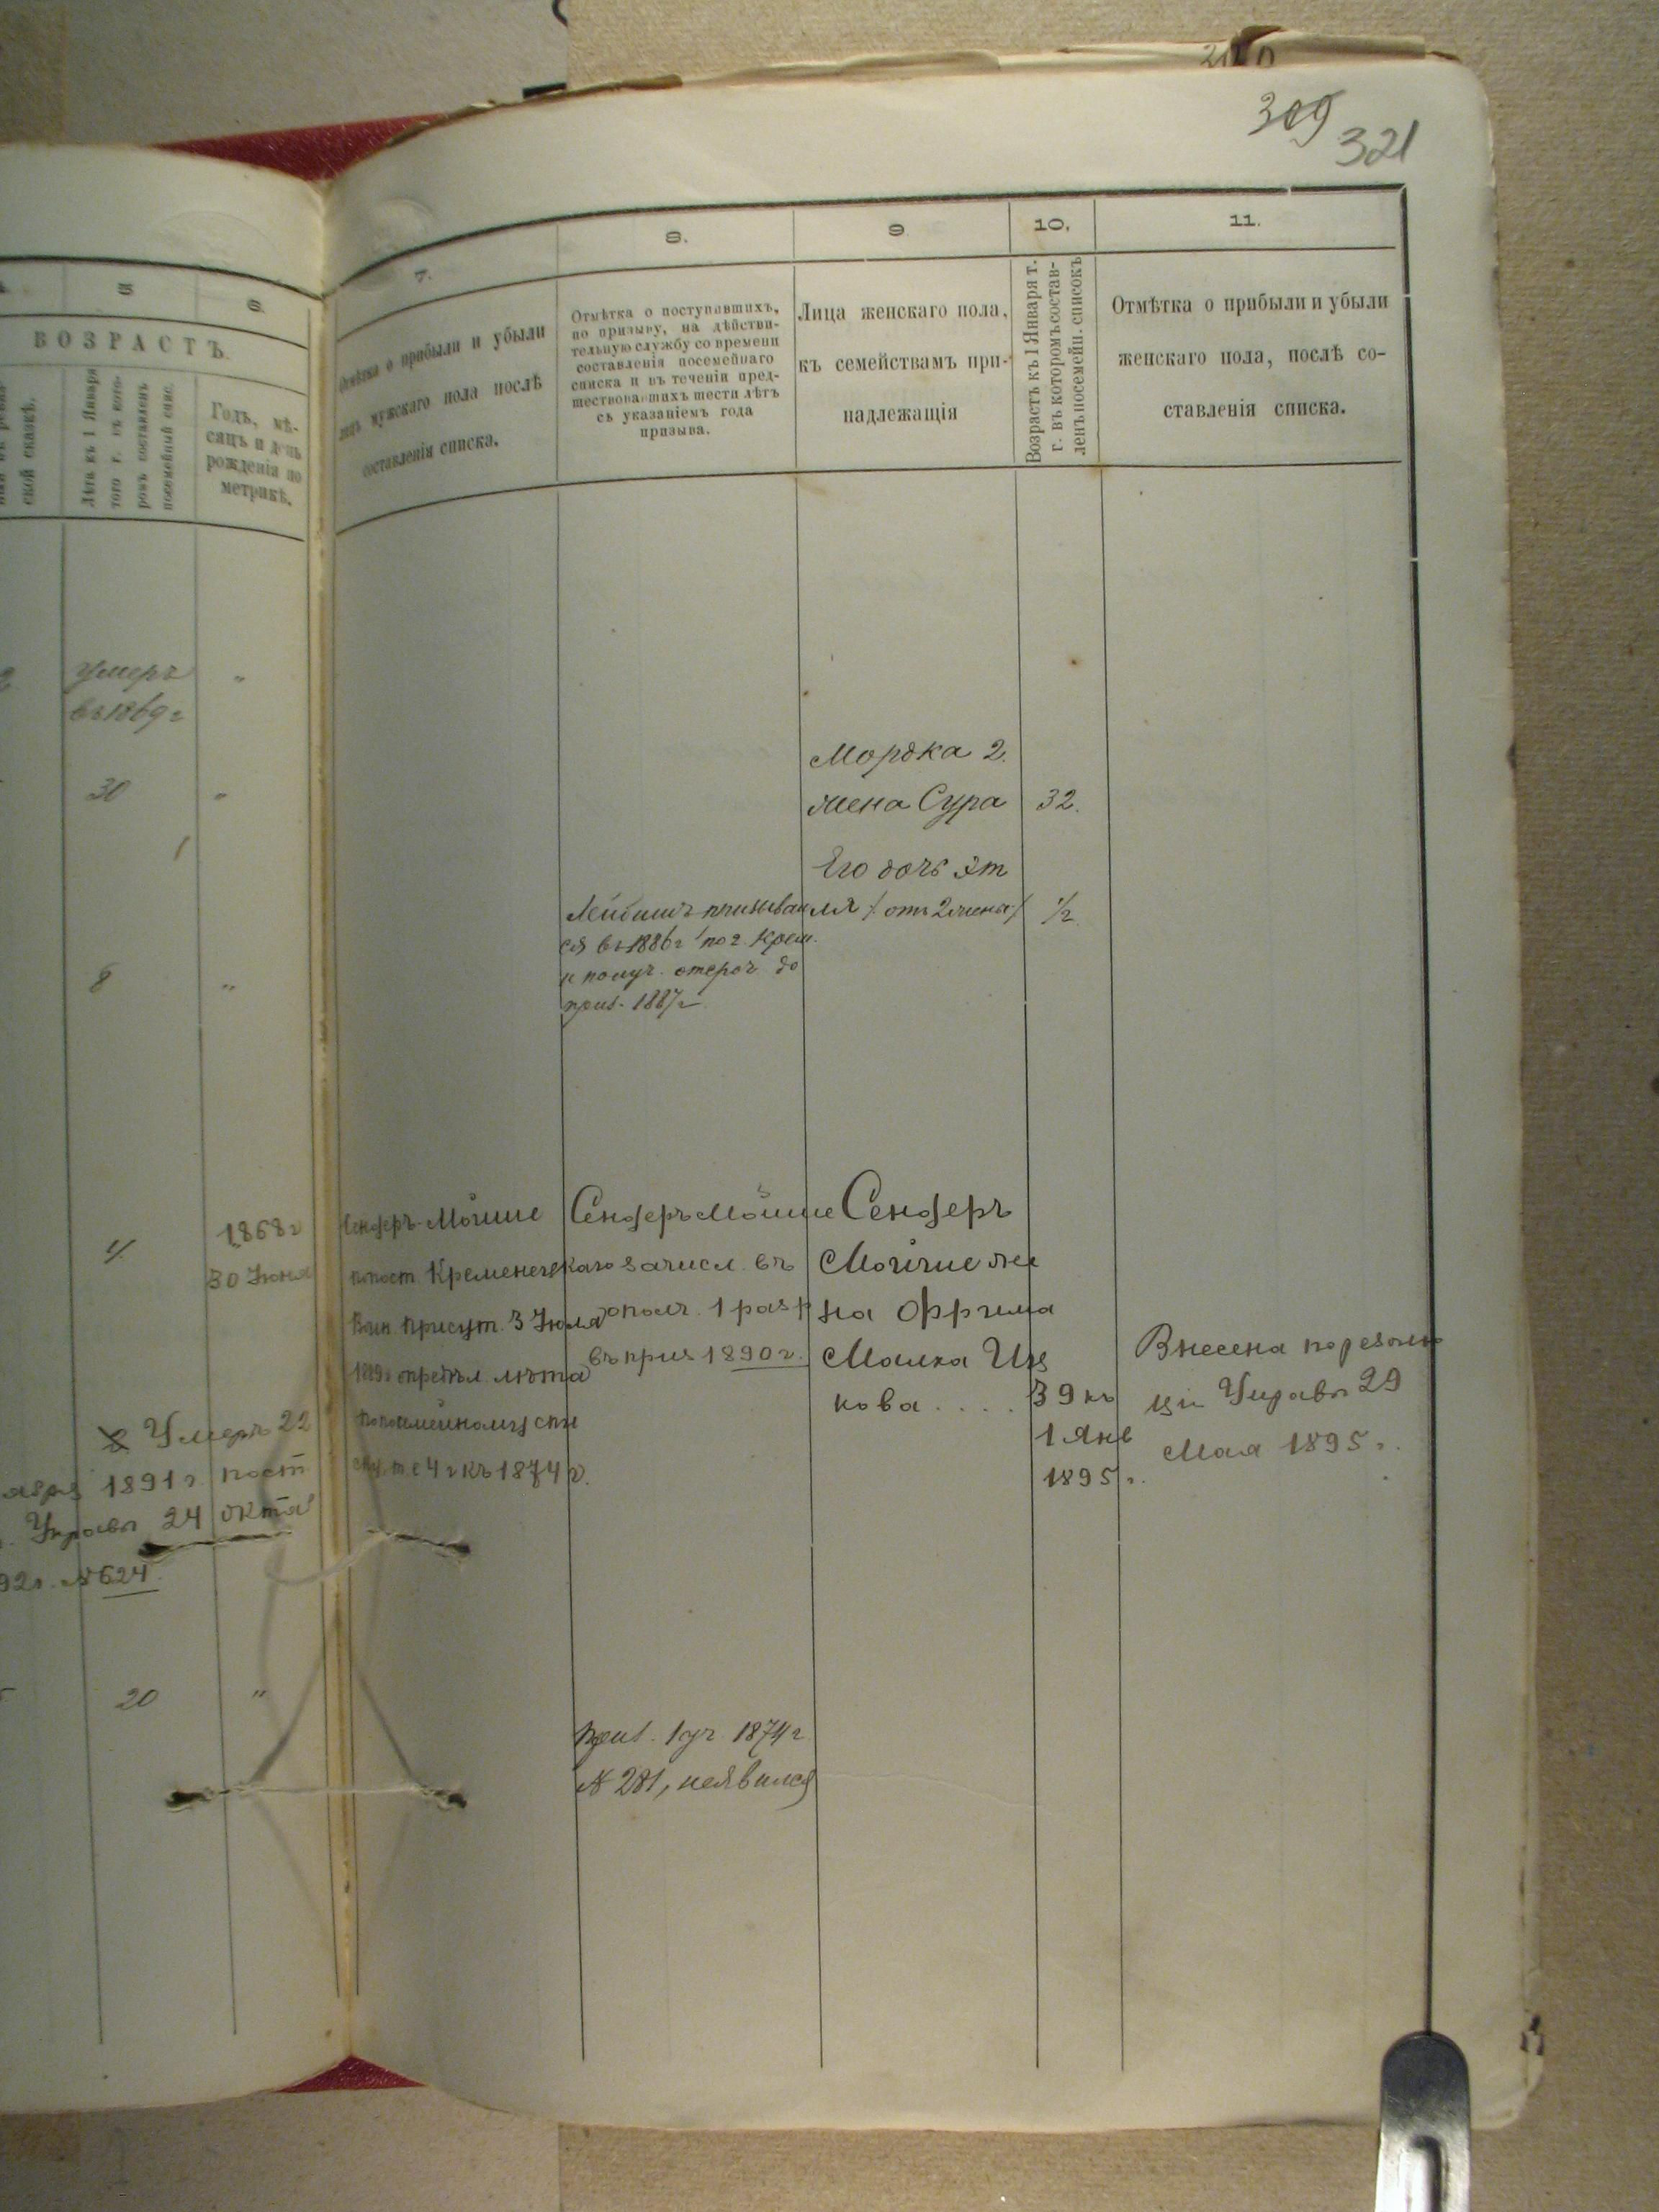 309
321
5
6
7.
8.
9
10.
11.
ВОЗРАСТЪ.
ской сказкѣ.
Лѣтъ къ 1 Января
того г. въ кото-
ромъ составленъ
посемейный спис.
Годъ, мѣ-
сяцъ и день
рожденія по
метрикѣ.
Отмѣтка о прибыли и убыли
лицъ мужскаго пола послѣ
составленія списка.
Отмѣтка о поступившихъ,
по призыву, на дѣйстви-
тельную службу со времени
составленія посемейнаго
списка и въ теченіи пред-
шествовавшихъ шести лѣтъ
съ указаніемъ года
призыва.
Лица женскаго пола,
къ семействамъ при-
надлежащія
Возрастъ къ 1 Января т.
г. въ которомъ состав-
ленъ посемейн. списокъ
Отмѣтка о прибыли и убыли
женскаго пола, послѣ со-
ставленія списка.
умеръ "
въ 1869 г
30 "
8 "
Мордка 2.
жена Сура 32.
Его дочь Эт
ля /: отъ 2 жены :/ 1/2
Лейбишъ призывал
ся въ 1886 г по г. Крем.
и получ. отсроч до
приз. 1887 г
4.
1868 г
30 Іюня
Сендеръ-Мойше
по пост. Кременецкаго
Воин. Присут. 3 Іюля
опредѣл. лѣта
по посемейному спи
ску, т. е 4 г къ 1874 г.
Сендеръ Мойше
зачисл. въ
ополч. 1 разр
въ приз 1890 г.
Сендеръ
Мойше же
на Фрима
Малка Иц
кова ....
39 къ
1 Янв
1895 г.
Внесена по резолю
ціи Управы 29
Мая 1895 г.
Умеръ 22
1891 г. пост
Управы 24 Октя
92 г. № 624.
20 "
Приз. 1 уч. 1874 г
№ 281, неявился